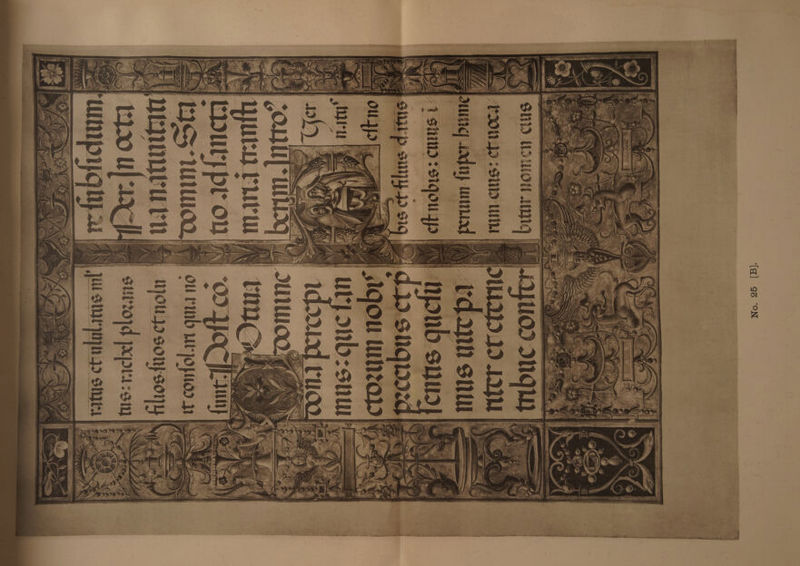 ratus et ululatus ml'
tus: rachel plorans
filios suos et nolu
it consolari quia nō
sunt. Post cō.
Uotiua
domine
dona percepi
mus: que san
ctorum nobis
precibus et p
sentis quesū
mus uite pa
riter et eterne
tribue confer
re subsidium.
Per. In octa
ua natiuitati
domini. Sta
tio ad sancta
maria transti
berim. Intro?
Puer
natus
est no
bis et filius datus
est nobis: cuius i
perium super hume
rum eius: et uoca
bitur nomen eius
No. 25 [B].